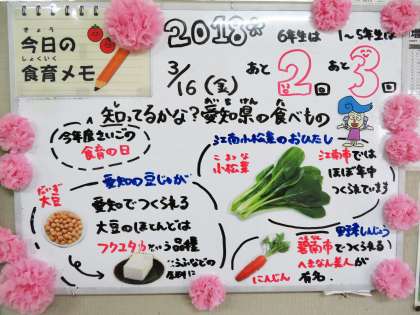 きょう
今日の
しょくいく
食育メモ
2018年
3/16(金)
6年生は
あと
2回
1〜5年生は
あと
3回
知ってるかな?愛知県の食べもの
今年度さいごの
食育の日
江南小松菜のおひたし
こまつな
小松菜
江南市では
ほぼ年中
つくられています
だいず
大豆
愛知の豆じゃが
愛知でつくられる
大豆のほとんどは
フクユタカという品種
とうふなどの
原料に
野菜しんじょう
碧南市でつくられる
へきなん美人が
有名。
にんじん